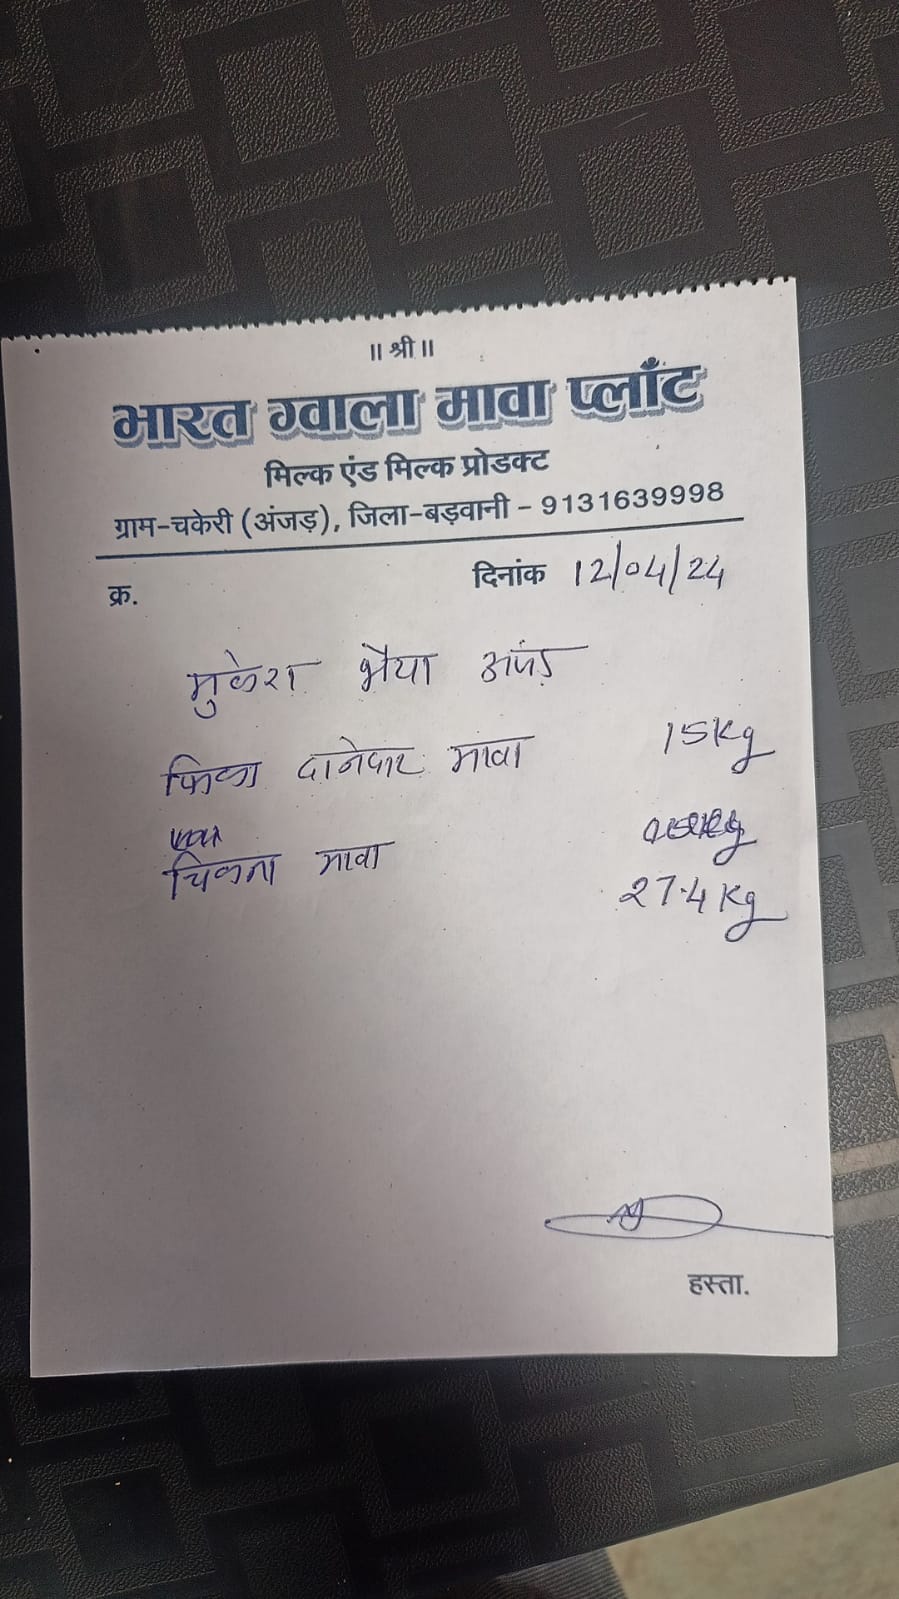 ॥ श्री ॥
भारत ग्वाला मावा प्लाँट
मिल्क एंड मिल्क प्रोडक्ट
ग्राम-चकेरी (अंजड़), जिला-बड़वानी - 9131639998
क्र.
दिनांक 12/04/24
मुकेश भैया अंजड़
फिका दानेदार मावा 15Kg
चिकना मावा
27.4 Kg
हस्ता.